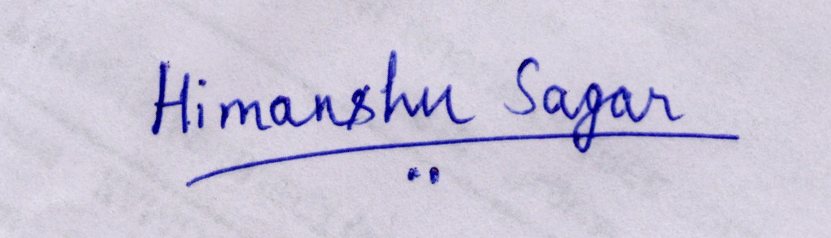 Himanshu Sagar